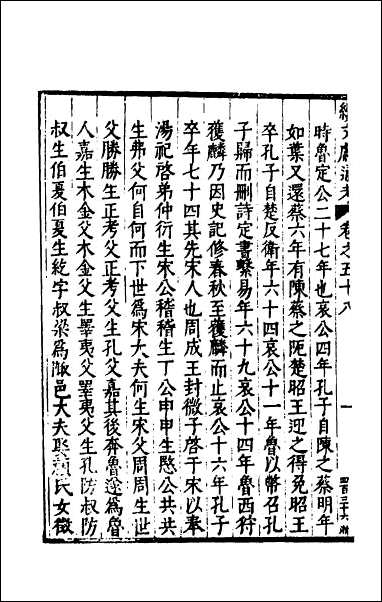 續文獻通考
卷之五十八
一
時魯定公二十七年也哀公四年孔子自陳之蔡明年
如葉又還蔡六年有陳蔡之阨楚昭王迎之得免昭王
卒孔子自楚反衛年六十四哀公十一年魯以幣召孔
子歸而刪詩定書繫易年六十九哀公十四年魯西狩
獲麟乃因史記修春秋至獲麟而止哀公十六年孔子
卒年七十四其先宋人也周成王封微子啓于宋以奉
湯祀啓弟仲衍生宋公稽稽生丁公申申生愍公共共
生弗父何自何而下世爲宋大夫何生宋父周周生世
父勝勝生正考父正考父生孔父嘉其後奔魯遂爲魯
人嘉生木金父木金父生睪夷父睪夷父生孔防叔防
叔生伯夏伯夏生紇字叔梁爲陬邑大夫娶顏氏女徵